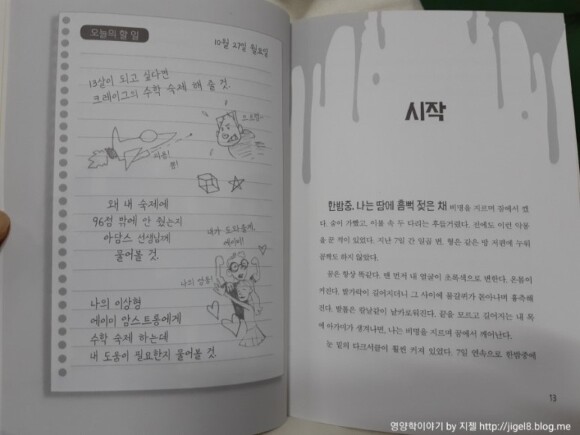 오늘의 할 일
10월 27일 월요일
13살이 되고 싶다면
크레이그의 수학 숙제 해 줄 것.
으으윽..
슈웅!
왜 내 숙제에
96점 밖에 안 줬는지
아담스 선생님께
물어볼 것.
내가 도와줄게,
에이미!
나의 영웅!
나의 이상형
에이미 암스트롱에게
수학 숙제 하는데
내 도움이 필요한지 물어볼 것.
시작
한밤중, 나는 땀에 흠뻑 젖은 채 비명을 지르며 잠에서 깼
다. 숨이 가빴고, 이불 속 두 다리는 후들거렸다. 전에도 이런 악몽
을 꾼 적이 있었다. 지난 7일 간 일곱 번. 형은 같은 방 저편에 누워
꿈쩍도 하지 않았다.
꿈은 항상 똑같다. 맨 먼저 내 얼굴이 초록색으로 변한다. 온몸이
커진다. 발가락이 길어지더니 그 사이에 물갈퀴가 돋아나며 흉측해
진다. 발톱은 칼날같이 날카로워진다. 끝을 모르고 길어지는 내 목
에 아가미가 생겨나면, 나는 비명을 지르며 꿈에서 깨어난다.
눈 밑의 다크서클이 훨씬 커져 있었다. 7일 연속으로 한밤중에
13
영양학이야기 by 지젤 http://jigel8.blog.me